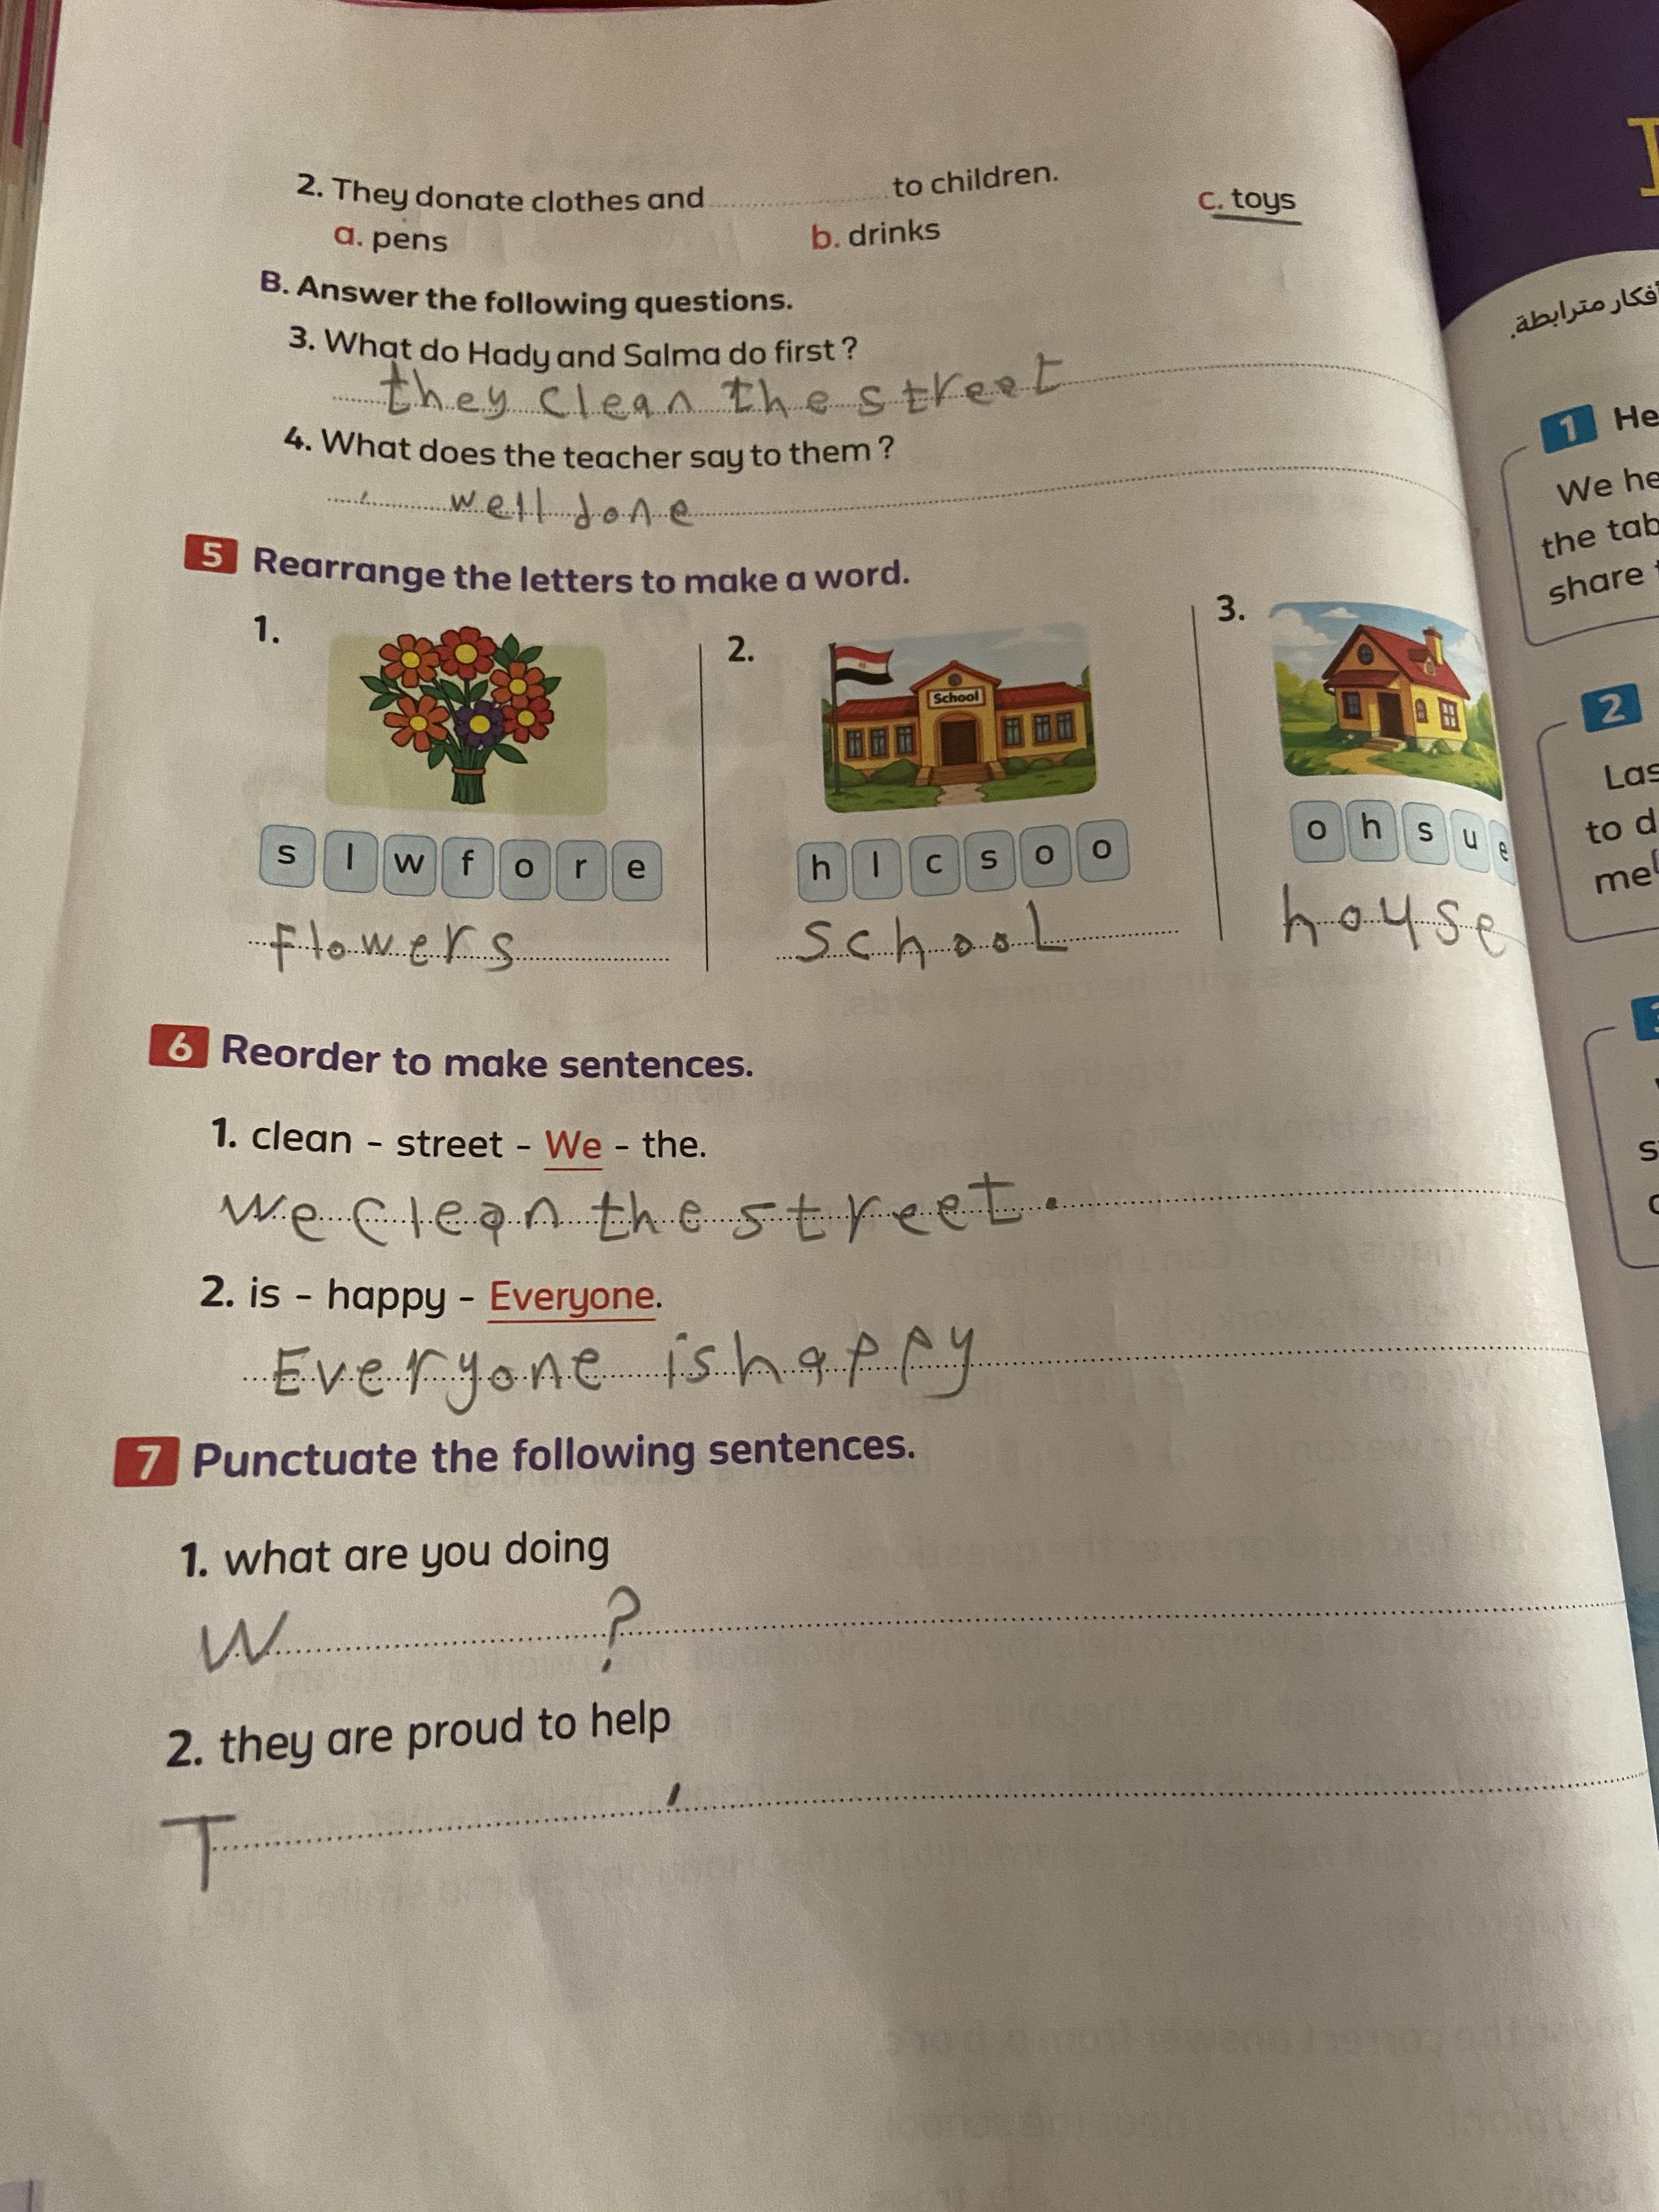 2. They donate clothes and ........................ to children.
a. pens b. drinks c. toys
B. Answer the following questions.
3. What do Hady and Salma do first ?
they clean the street
4. What does the teacher say to them ?
well done
5 Rearrange the letters to make a word.
1. 2. 3.
School
s l w f o r e
h l c s o o
o h s u e
flowers
school
house
6 Reorder to make sentences.
1. clean - street - We - the.
we clean the street.
2. is - happy - Everyone.
Everyone is happy
7 Punctuate the following sentences.
1. what are you doing
W ?
2. they are proud to help
T .
أفكار مترابطة.
1 He
We he
the tab
share
2
Las
to d
me